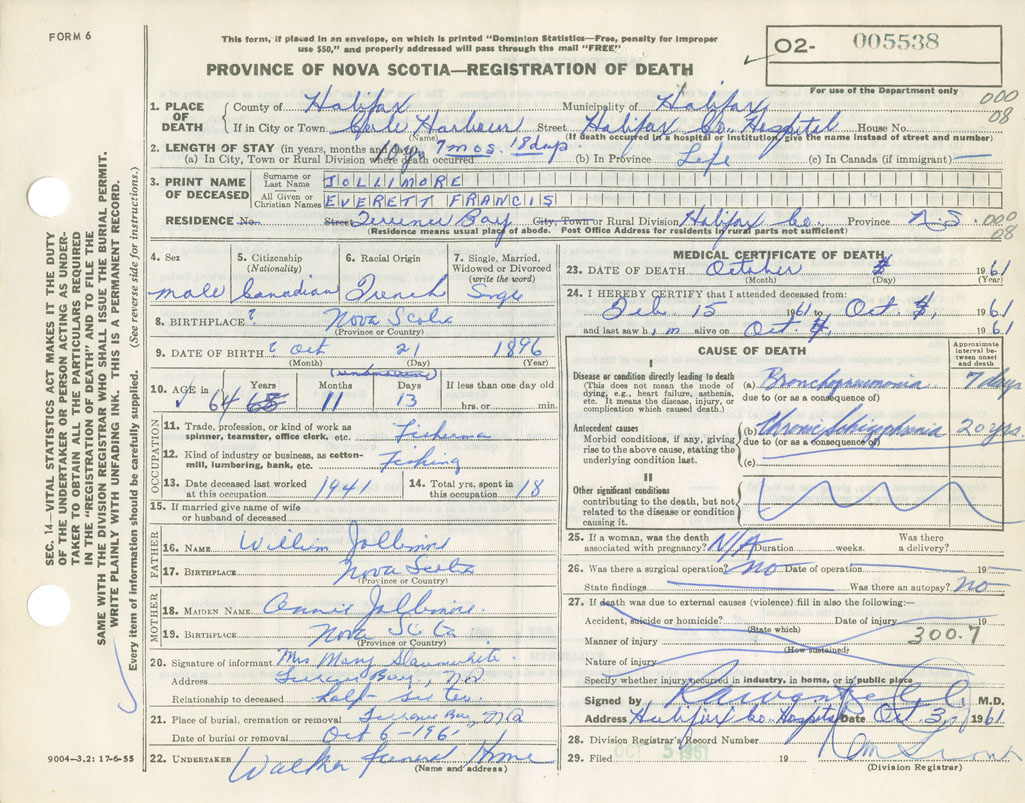 FORM 6
This form, if placed in an envelope, on which is printed "Dominion Statistics—Free, penalty for improper
use $50," and properly addressed will pass through the mail "FREE"
O2- 005538
PROVINCE OF NOVA SCOTIA—REGISTRATION OF DEATH
For use of the Department only
000
08
1. PLACE OF DEATH
County of Halifax Municipality of Halifax
If in City or Town Cole Harbour Street Halifax Co. Hospital House No.
(Name) (If death occurred in a hospital or institution, give the name instead of street and number)
2. LENGTH OF STAY (in years, months and days) 7 mos. 18 days
(a) In City, Town or Rural Division where death occurred (b) In Province Life (c) In Canada (if immigrant) —
3. PRINT NAME OF DECEASED
Surname or Last Name JOLLIMORE
All Given or Christian Names EVERETT FRANCIS
RESIDENCE No. Street Terence Bay City, Town or Rural Division Halifax Co Province N.S. 000
08
(Residence means usual place of abode. Post Office Address for residents in rural parts not sufficient)
4. Sex
male
5. Citizenship
(Nationality)
Canadian
6. Racial Origin
French
7. Single, Married,
Widowed or Divorced
(write the word)
Single
8. BIRTHPLACE ? Nova Scotia
(Province or Country)
9. DATE OF BIRTH ? Oct 21 1896
(Month) (Day) (Year)
10. AGE in Years Months Days If less than one day old
64 11 13 hrs. or min.
OCCUPATION
11. Trade, profession, or kind of work as
spinner, teamster, office clerk, etc. Fisherman
12. Kind of industry or business, as cotton-
mill, lumbering, bank, etc. Fishing
13. Date deceased last worked
at this occupation 1941
14. Total yrs. spent in
this occupation 18
15. If married give name of wife
or husband of deceased
FATHER
16. NAME William Jollimore
17. BIRTHPLACE Nova Scotia
(Province or Country)
MOTHER
18. MAIDEN NAME Annie Jollimore.
19. BIRTHPLACE Nova Scotia
(Province or Country)
20. Signature of informant Mrs Mary Slaunwhite
Address Terence Bay, N.S
Relationship to deceased half-sister
21. Place of burial, cremation or removal Terence Bay, N.S
Date of burial or removal Oct 6-1961
22. UNDERTAKER Walker Funeral Home
(Name and address)
9004—3.2: 17-6-55
MEDICAL CERTIFICATE OF DEATH
23. DATE OF DEATH October 1961
(Month) (Day) (Year)
24. I HEREBY CERTIFY that I attended deceased from:
Feb. 15 1961 to Oct. 1961
and last saw him alive on Oct. 1961
CAUSE OF DEATH
Approximate interval between onset and death
I
Disease or condition directly leading to death
(This does not mean the mode of
dying, e.g., heart failure, asthenia,
etc. It means the disease, injury, or
complication which caused death.)
(a) Bronchopneumonia 7 days
due to (or as a consequence of)
Antecedent causes
Morbid conditions, if any, giving
rise to the above cause, stating the
underlying condition last.
(b) Chronic Schizophrenia 20 yrs.
due to (or as a consequence of)
(c)
II
Other significant conditions
contributing to the death, but not
related to the disease or condition
causing it.
25. If a woman, was the death
associated with pregnancy? N/A Duration weeks. Was there
a delivery?
26. Was there a surgical operation? no Date of operation 19
State findings Was there an autopsy? no
27. If death was due to external causes (violence) fill in also the following:—
Accident, suicide or homicide? Date of injury 19
(State which)
300.7
Manner of injury
(How sustained)
Nature of injury
Specify whether injury occurred in industry, in home, or in public place
Signed by M.D.
Address Halifax Co. Hospital Date Oct 3, 1961
28. Division Registrar's Record Number
29. Filed OCT 5 1961 19
(Division Registrar)
SEC. 14—VITAL STATISTICS ACT MAKES IT THE DUTY
OF THE UNDERTAKER OR PERSON ACTING AS UNDER-
TAKER TO OBTAIN ALL THE PARTICULARS REQUIRED
IN THE "REGISTRATION OF DEATH" AND TO FILE THE
SAME WITH THE DIVISION REGISTRAR WHO SHALL ISSUE THE BURIAL PERMIT.
WRITE PLAINLY WITH UNFADING INK. THIS IS A PERMANENT RECORD.
Every item of information should be carefully supplied. (See reverse side for instructions.)